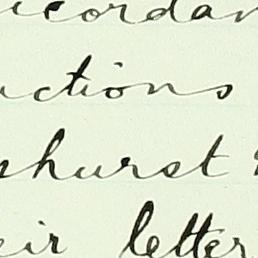 ccordan
ctions
shurst
eir letter